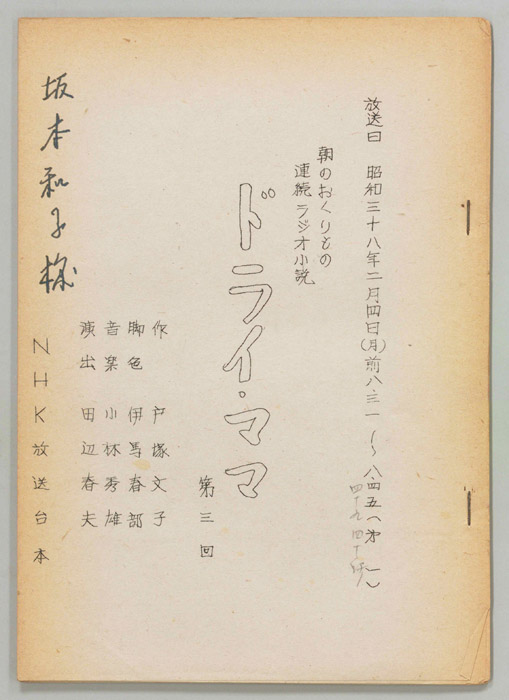 放送日 昭和三十八年二月四日(月)前八・三一~八・四五(第一)
朝のおくりもの
連続ラジオ小説
ドライ・ママ
第三回
作 戸塚文子
脚色 伊馬春部
音楽 小林秀雄
演出 田辺春夫
NHK放送台本
坂本和子様